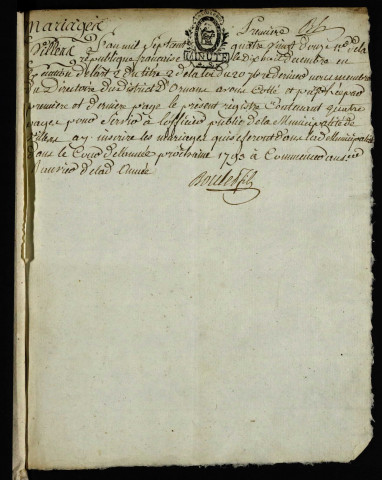 Mariages
Premiere
Villers L'an mil sept cent quatre vingt douze 1er de la
république française le dix huit décembre en
Execution de l'art 2 du titre 2 de la loi du 20 7bre dernier nous membre
du Directoire du District d'Ornans avons Cotté et paraphé par
premiere et derniere page le present registre Contenant quatre
pages pour servir à l'officier public de la Municipalité de
Villers a y inscrire les mariages qui se feront dans lad Municipalité
dans le Cour de l'année prochaine 1793 à Commencer au 1er
Janvier de lad année
MINUTE